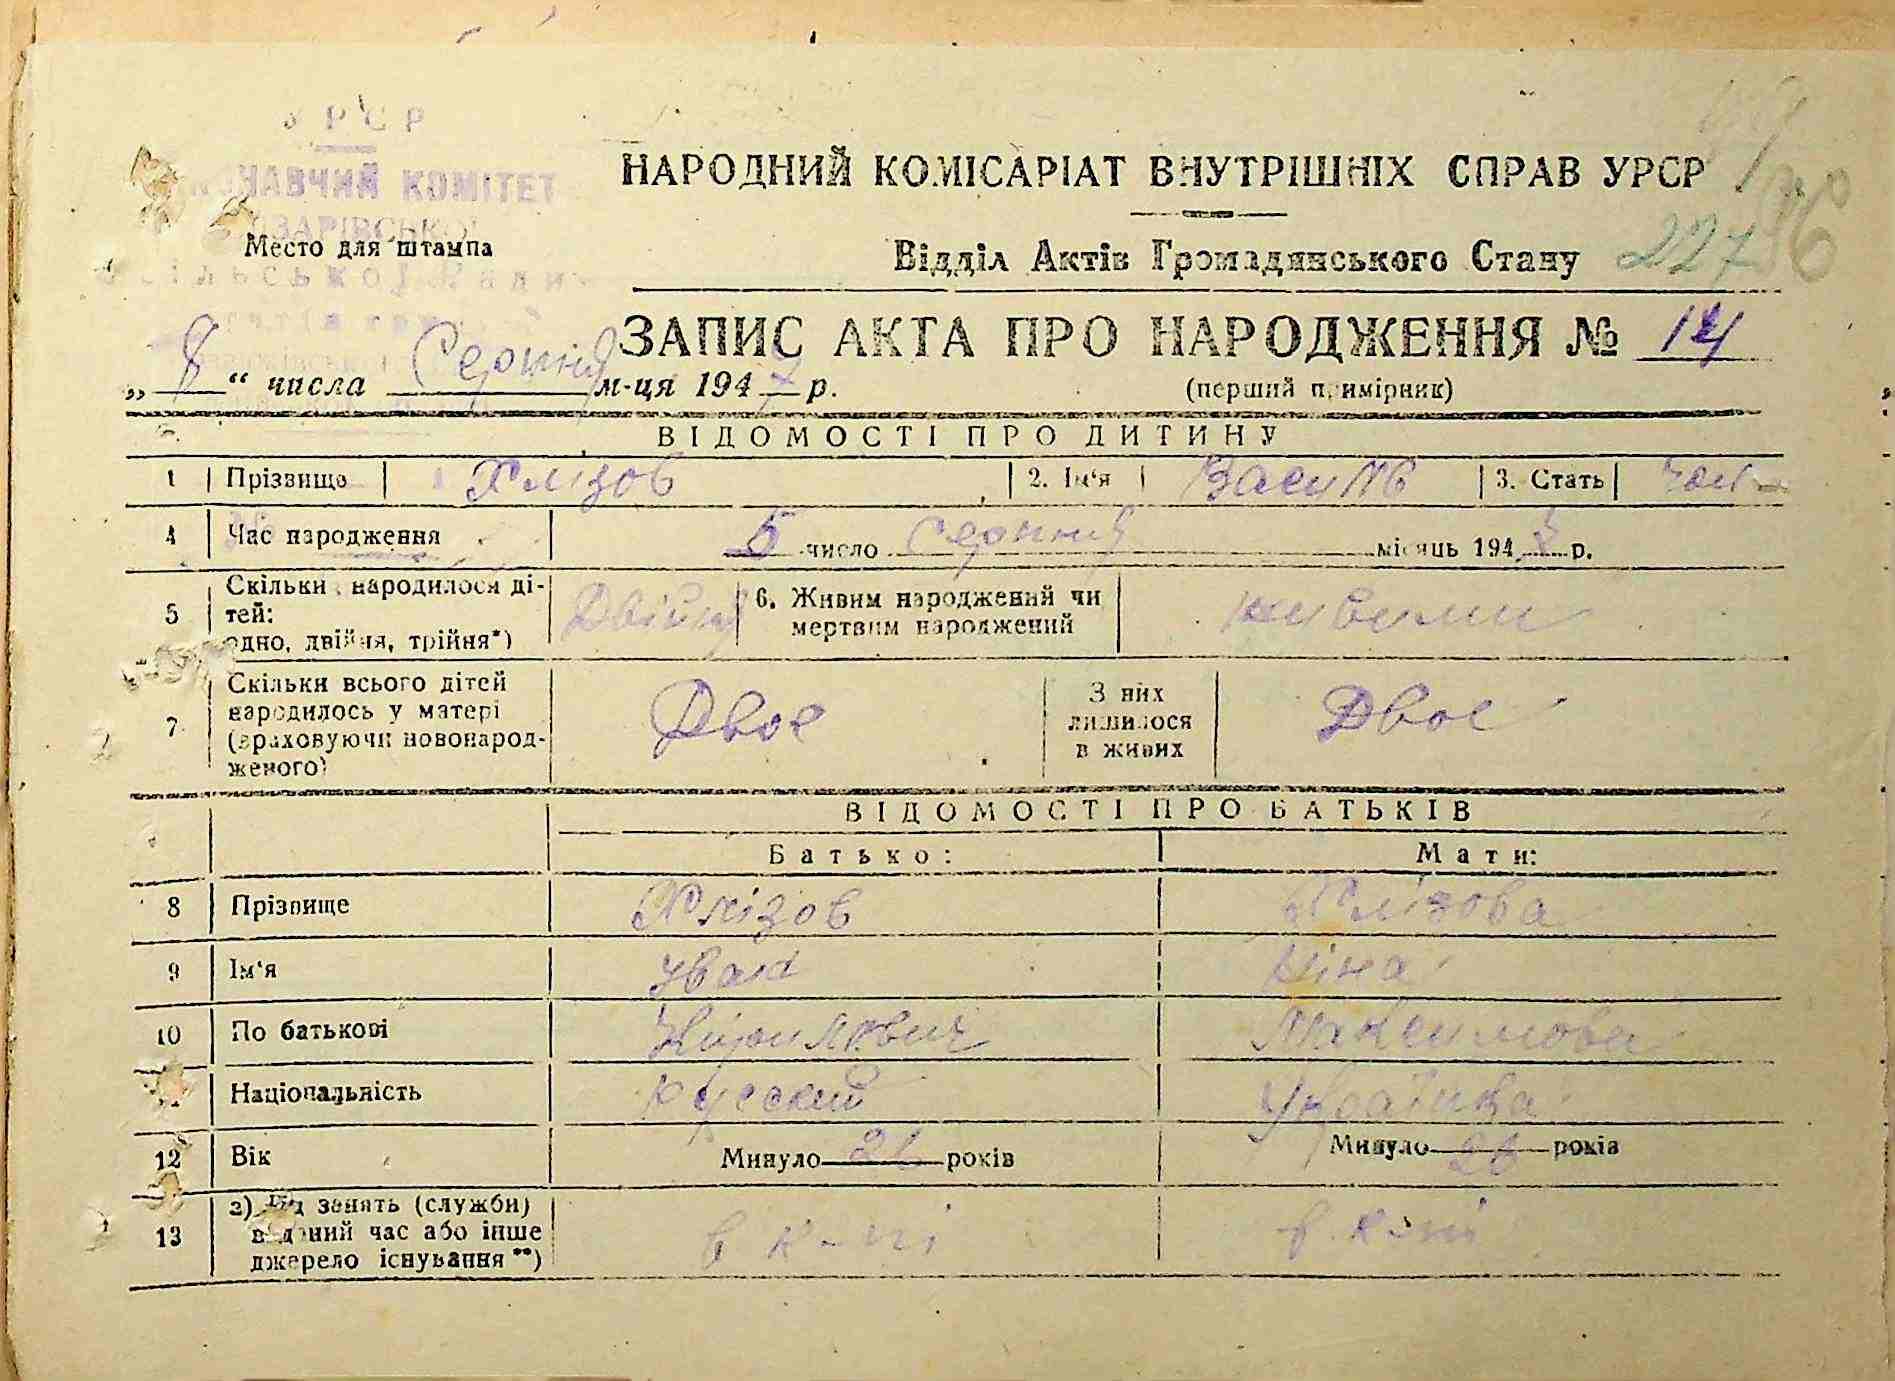 УРСР
НАВЧИЙ КОМІТЕТ
НАРОДНИЙ КОМІСАРІАТ ВНУТРІШНІХ СПРАВ УРСР
Место для штампа
Відділ Актів Громадянського Стану 227
ЗАПИС АКТА ПРО НАРОДЖЕННЯ № 14
„ 8 “ числа Серпня м-ця 1947 р.
(перший примірник)
ВІДОМОСТІ ПРО ДИТИНУ
1 Прізвище Хлізов 2. Ім'я Василь 3. Стать чол
4 Час народження 5 число Серпня місяць 1947 р.
5 Скільки народилося ді-
тей:
одно, двійня, трійня*) Двійня
6. Живим народжений чи
мертвим народжений живими
7 Скільки всього дітей
народилось у матері
(враховуючи новонарод-
женого) Двое
З них
лишилося
в живих Двое
ВІДОМОСТІ ПРО БАТЬКІВ
Батько: Мати:
8 Прізвище Хлізов Хлізова
9 Ім'я Іван Ніна
10 По батькові Максимова
11 Національність Русский Українка
12 Вік Минуло років Минуло 26 років
13 а) Рід занять (служби)
в даний час або інше
джерело існування**) в к-пі в к-пі